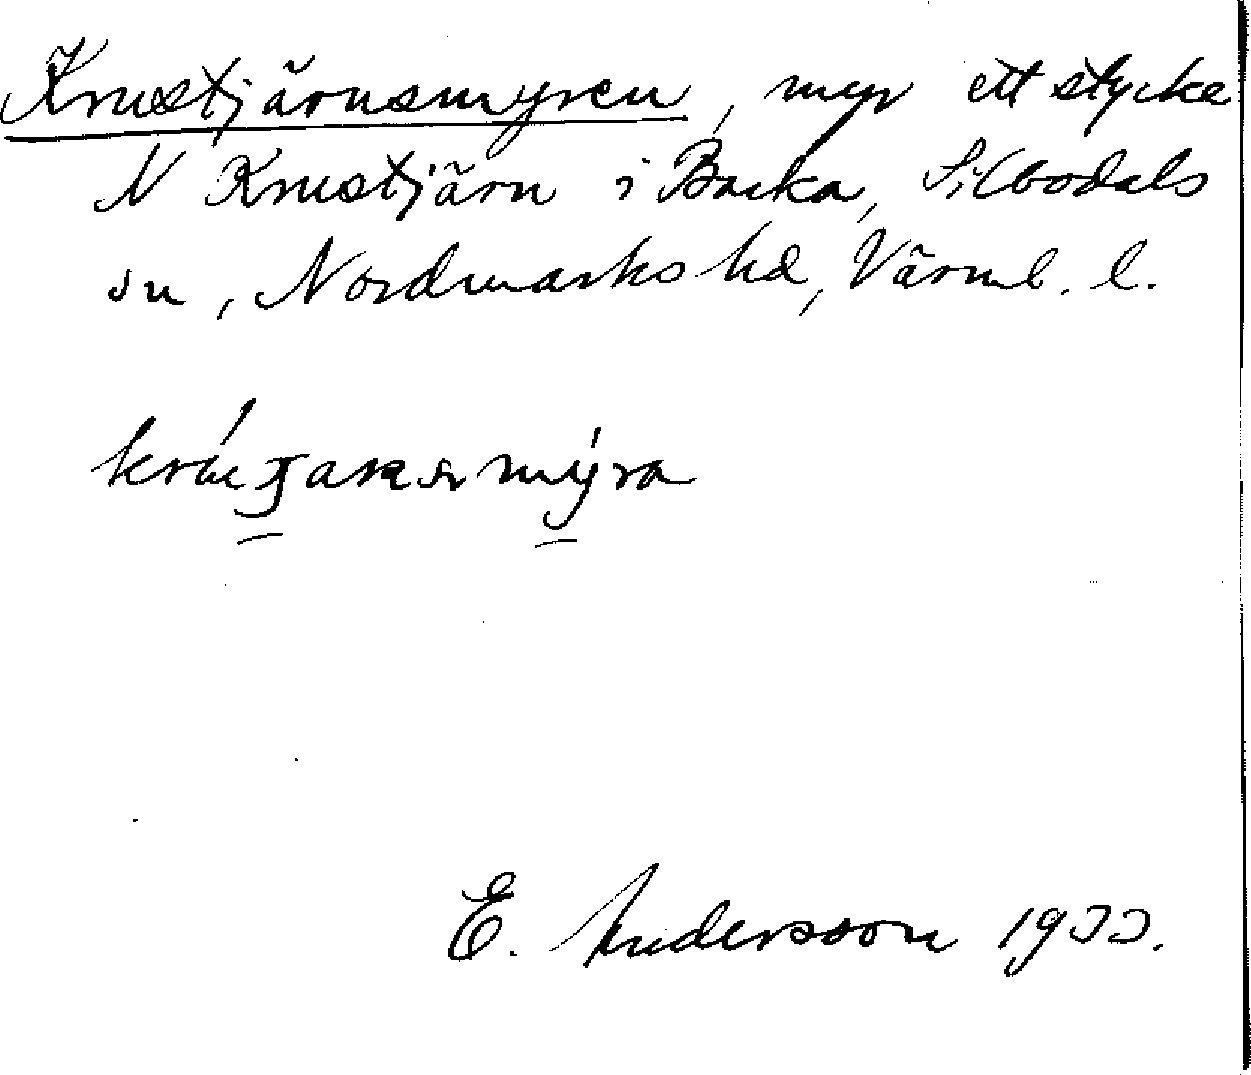 Krustjärnsmyren, myr ett stycke
N Krustjärn i Backa, Silbodals
sn, Nordmarks hd, Värml. l.
E. Andersson 1933.